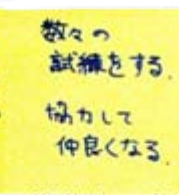 数々の
試練をする.
協力して
仲良くなる